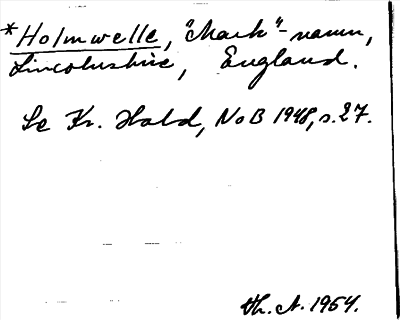 *Holmwelle, "Mark"-namn,
Lincolnshire, England.
Se Kr. Hald, NoB 1948, s.27.
Th. A. 1964.